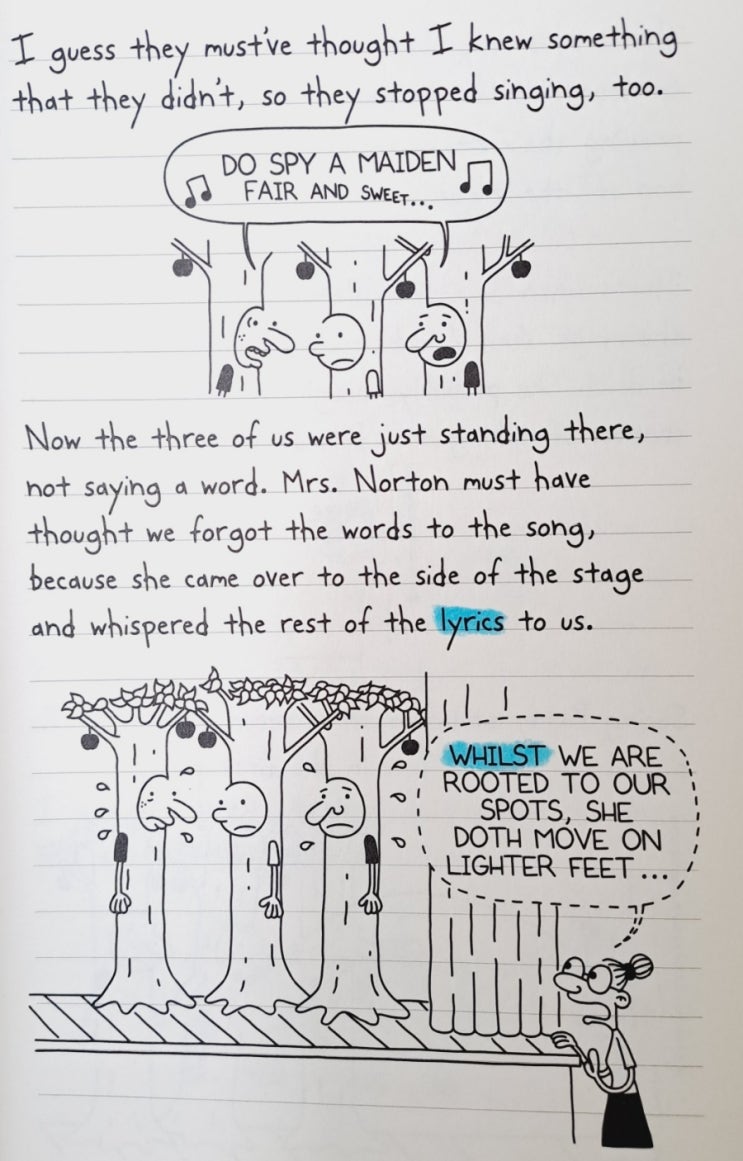 I guess they must've thought I knew something
that they didn't, so they stopped singing, too.
DO SPY A MAIDEN
FAIR AND SWEET...
Now the three of us were just standing there,
not saying a word. Mrs. Norton must have
thought we forgot the words to the song,
because she came over to the side of the stage
and whispered the rest of the lyrics to us.
WHILST WE ARE
ROOTED TO OUR
SPOTS, SHE
DOTH MOVE ON
LIGHTER FEET...